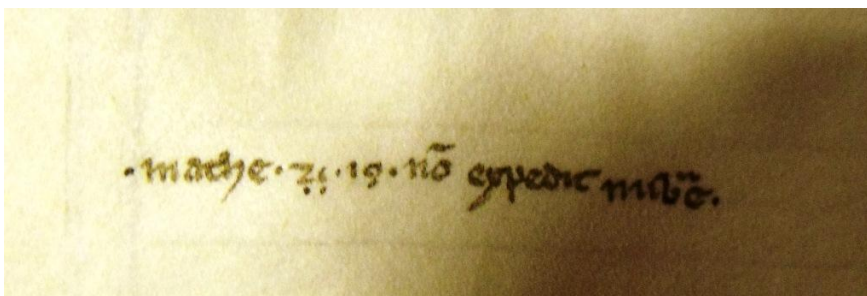 ·mathe· 21·19·nō expedit nub̄e.